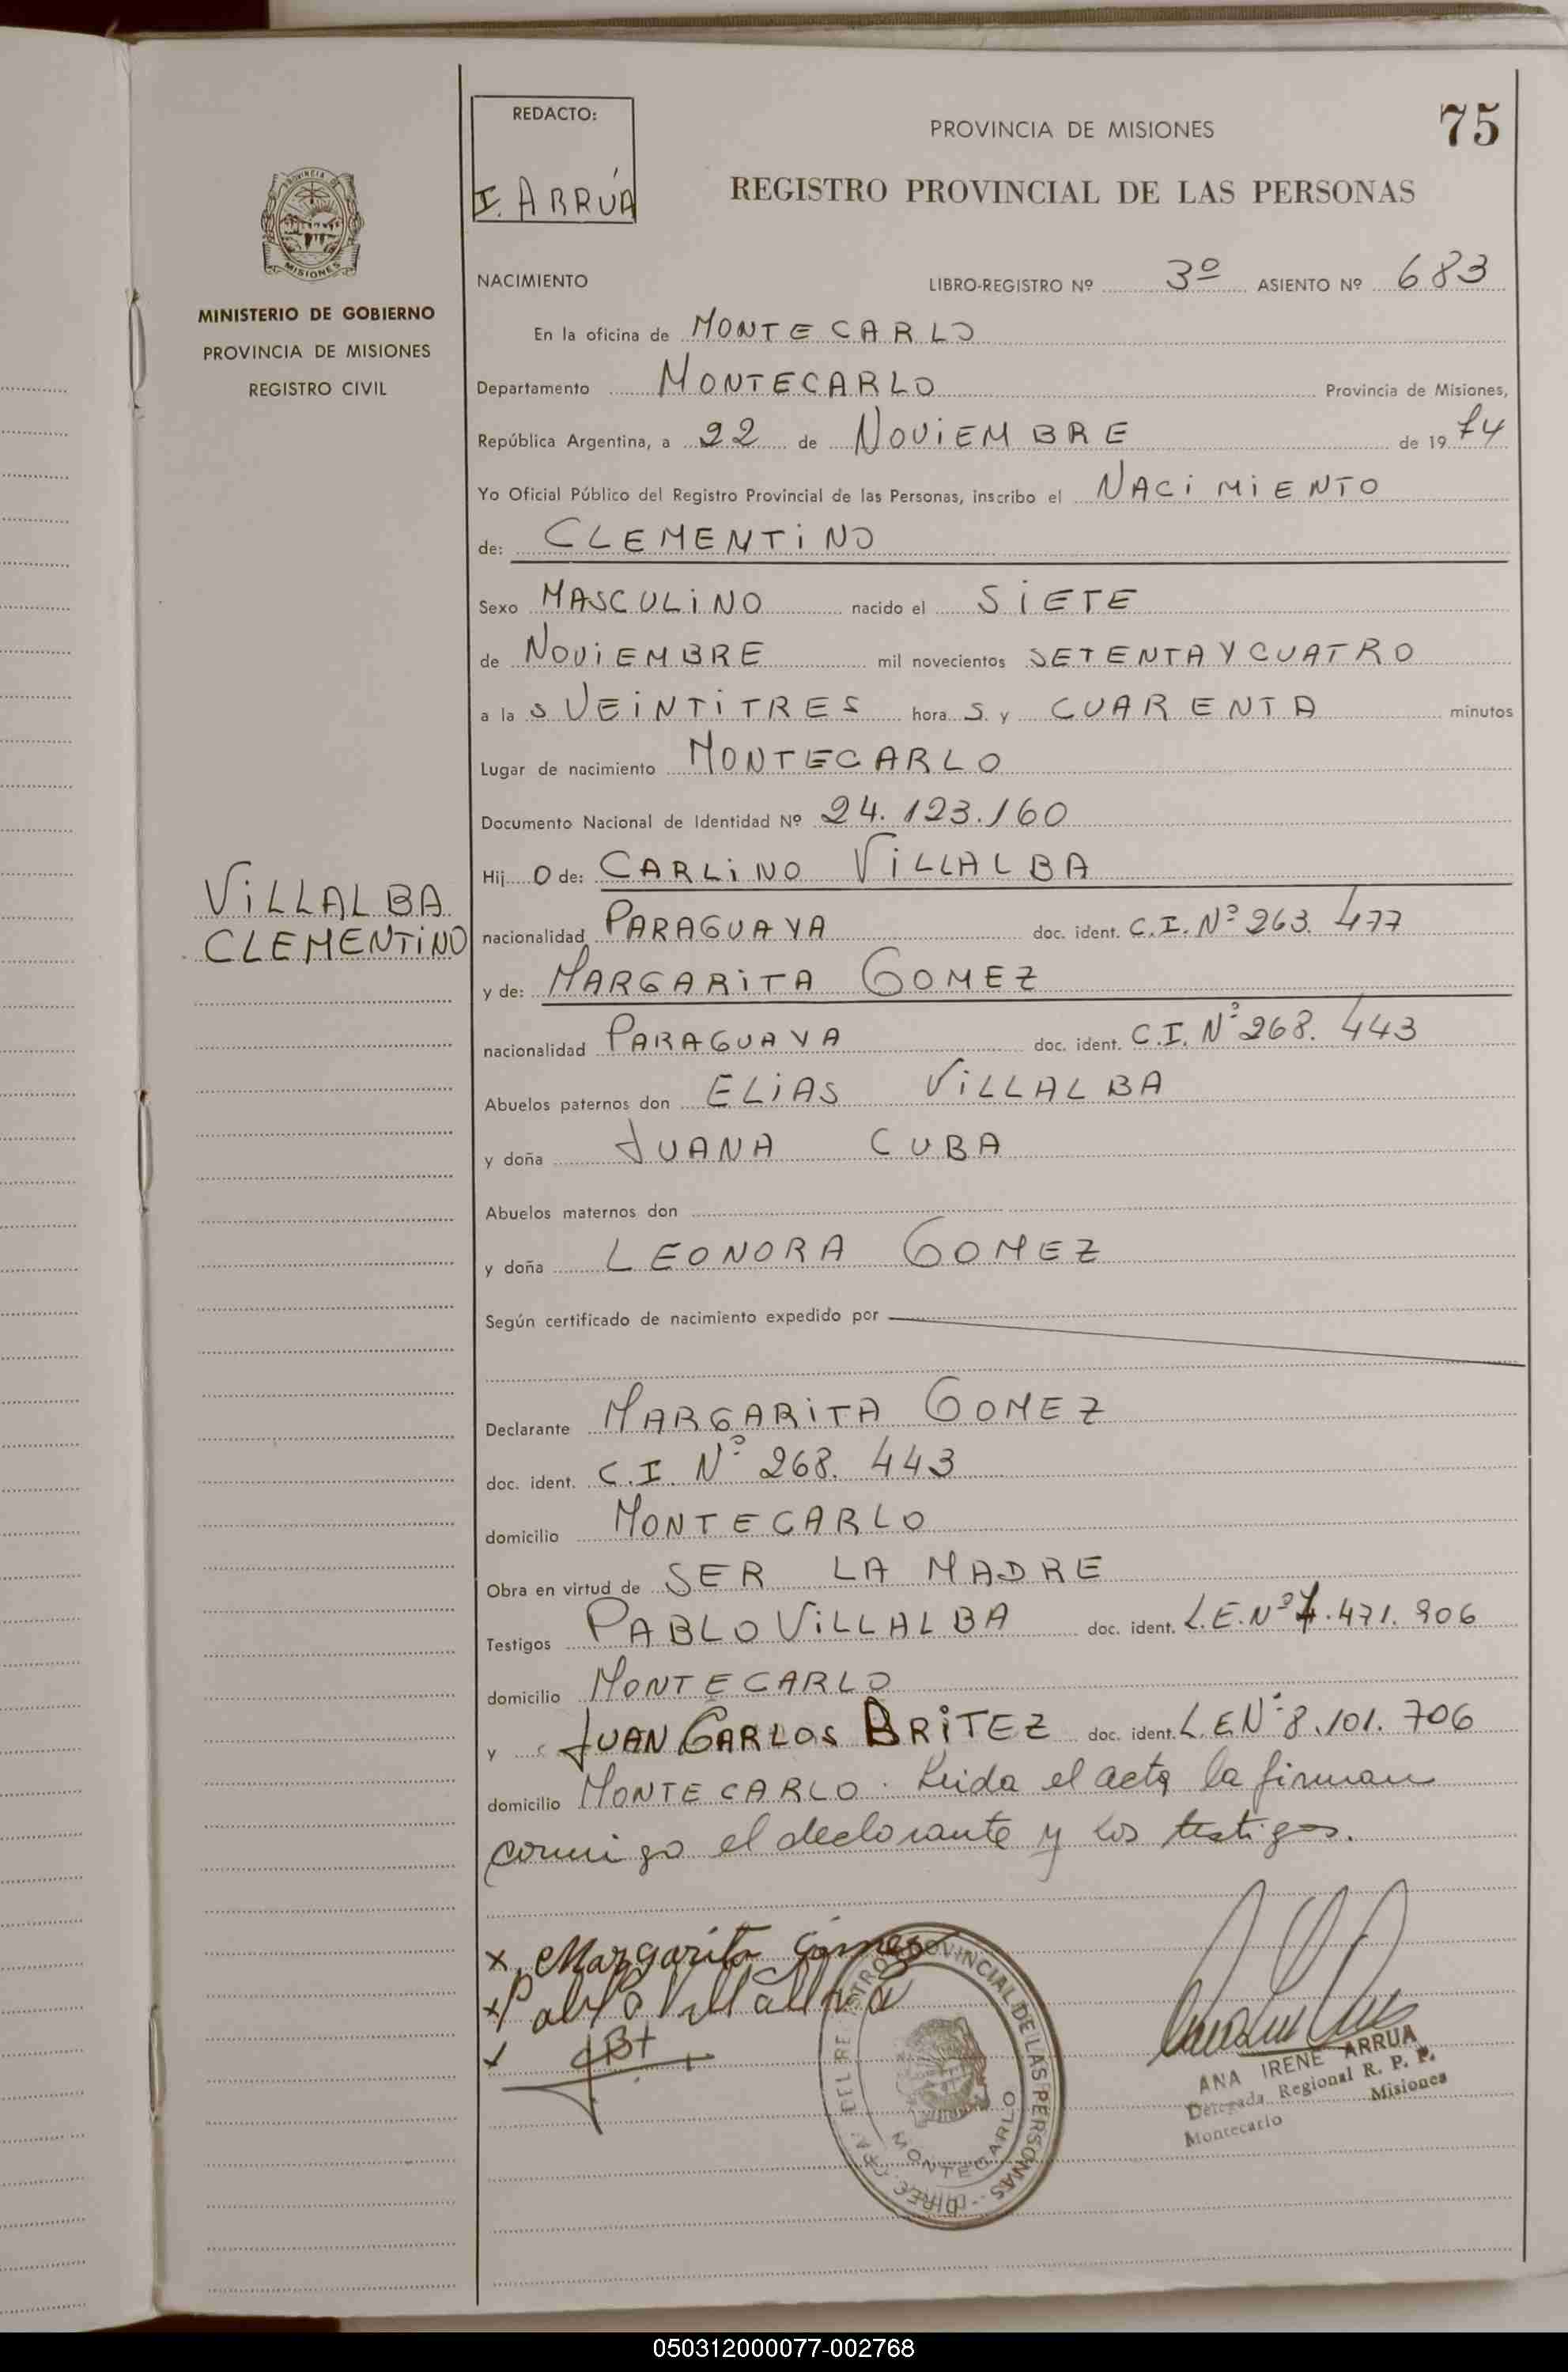 REDACTO:
I. ARRÚA
PROVINCIA DE MISIONES
75
REGISTRO PROVINCIAL DE LAS PERSONAS
PROVINCIA DE
MISIONES
MINISTERIO DE GOBIERNO
PROVINCIA DE MISIONES
REGISTRO CIVIL
NACIMIENTO LIBRO-REGISTRO Nº 3º ASIENTO Nº 683
En la oficina de MONTECARLO
Departamento MONTECARLO Provincia de Misiones,
República Argentina, a 22 de NOViEMBRE de 19 74
Yo Oficial Público del Registro Provincial de las Personas, inscribo el NACiMiENTO
de: CLEMENTiNO
Sexo MASCULiNO nacido el SiETE
de NOViEMBRE mil novecientos SETENTA Y CUATRO
a la s VEiNTiTRES hora s y CUARENTA minutos
Lugar de nacimiento MONTECARLO
Documento Nacional de Identidad Nº 24.123.160
ViLLALBA
CLEMENTiNO
Hij O de: CARLiNO ViLLALBA
nacionalidad PARAGUAYA doc. ident. C.I. Nº 263.477
y de: MARGARiTA GOMEZ
nacionalidad PARAGUAYA doc. ident. C.I. Nº 268.443
Abuelos paternos don ELiAS ViLLALBA
y doña JUANA CUBA
Abuelos maternos don
y doña LEONORA GOMEZ
Según certificado de nacimiento expedido por
Declarante MARGARiTA GOMEZ
doc. ident. C.I. Nº 268.443
domicilio MONTECARLO
Obra en virtud de SER LA MADRE
Testigos PABLO ViLLALBA doc. ident. L.E. Nº .471.906
domicilio MONTECARLO
y JUAN CARLOS BRiTEZ doc. ident. L.E Nº 8.101.706
domicilio MONTECARLO. Leida el acta la firman
conmigo el declarante y los testigos.
x Margarita Gómez
x Pablo Villalba
x
DIREC. GRAL. DEL REGISTRO PROVINCIAL DE LAS PERSONAS
MONTECARLO
ANA IRENE ARRUA
Delegada Regional R. P. P.
Montecarlo Misiones
050312000077-002768